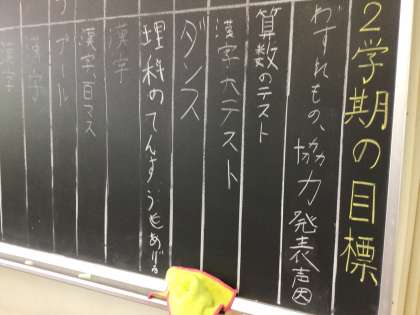 2学期の目標
わすれもの、協力 発表声
算数のテスト
漢字大テスト
ダンス
理科のてんすうをあげる
漢字
漢字百マス
プール
漢字
漢字